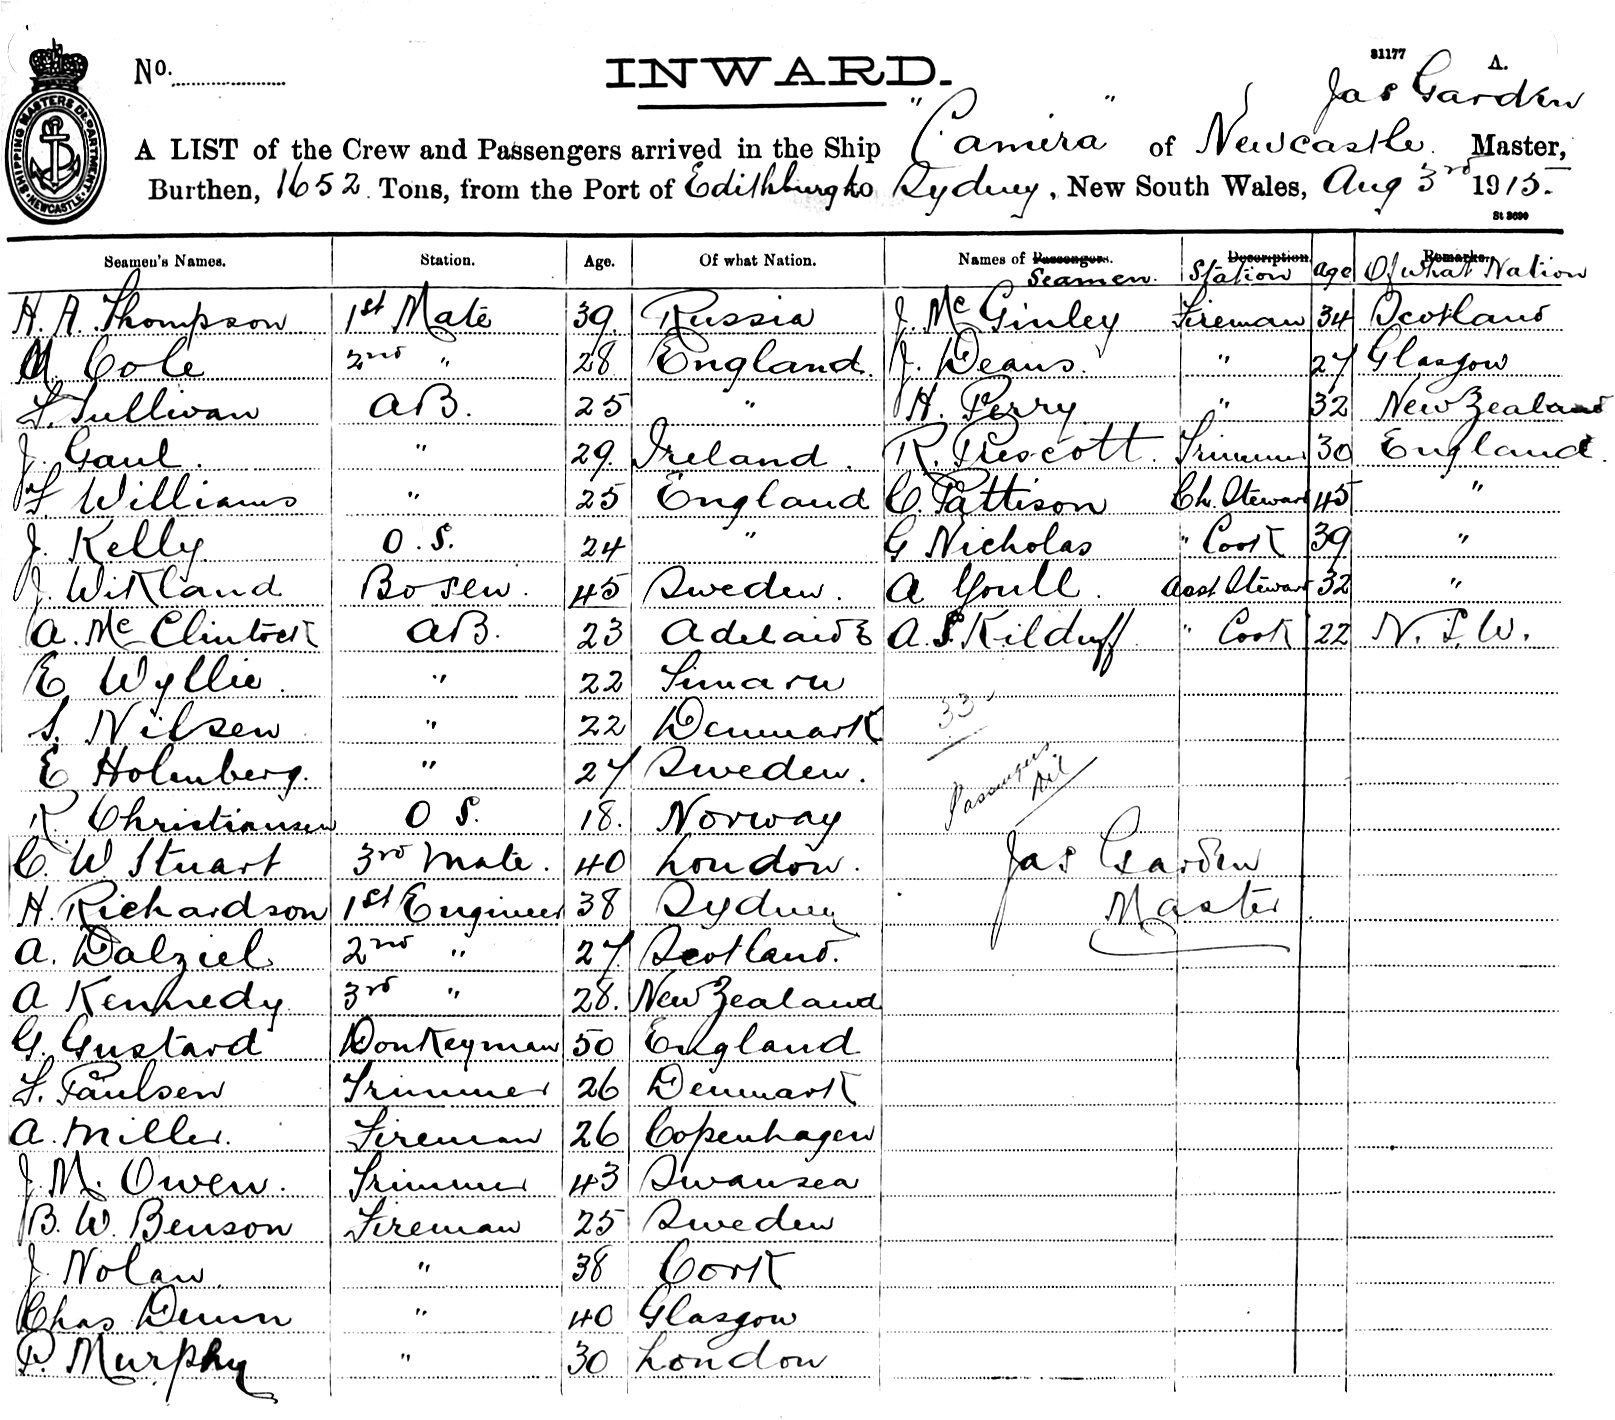 SHIPPING MASTERS DEPARTMENT NEWCASTLE
No.
INWARD.
31177 A.
Jas Garden
A LIST of the Crew and Passengers arrived in the Ship "Camira" of Newcastle. Master,
Burthen, 1652 Tons, from the Port of Edithburg to Sydney, New South Wales, Aug 3rd 1915.
St 3690
Seamen's Names. Station. Age. Of what Nation. Names of Passengers. Seamen. Description. Station Age Remarks. Of what Nation
H. A. Thompson 1st Mate 39 Russia J. McGinley Fireman 34 Scotland
M. Cole 2nd " 28 England. J. Deans. " 27 Glasgow
F. Sullivan AB. 25 " H. Perry " 32 New Zealand
J. Gaul. " 29. Ireland. R. Prescott. Trimmer 30 England.
F. Williams " 25 England C. Pattison Ch. Steward 45 "
J. Kelly O.S. 24 " G Nicholas " Cook 39 "
J. Wikland Bosen. 45 Sweden. A Youll. Asst Steward 32 "
A. McClintock AB. 23 Adelaide A. S. Kilduff " Cook 22 N.S.W.
E. Wyllie. " 22 Timaru
S. Nilsen " 22 Denmark
33
E Holmberg. " 27 Sweden.
Passengers Nil
K. Christiansen O S. 18. Norway
C. W Stuart 3rd Mate. 40 London. Jas Garden
H. Richardson 1st Engineer 38 Sydney Master
A. Dalziel 2nd " 27 Scotland.
A Kennedy 3rd " 28. New Zealand
G. Gustard Donkeyman 50 England
F. Paulsen Trimmer 26 Denmark
A. Miller. Fireman 26 Copenhagen
J. M. Owen. Trimmer 43 Swansea
B. W. Benson Fireman 25 Sweden
J Nolan " 38 Cork
Chas Dunn " 40 Glasgow
P. Murphy " 30 London